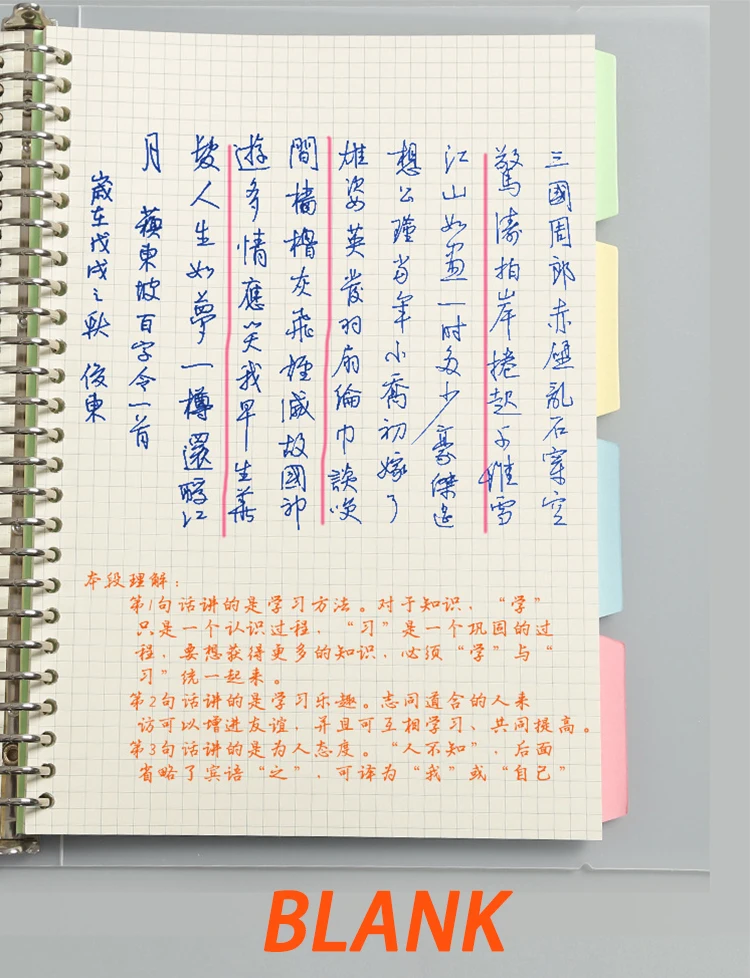 三國周郎赤壁亂石穿空
驚濤拍岸捲起千堆雪
江山如畫一時多少豪傑遙
想公瑾當年小喬初嫁了
雄姿英發羽扇綸巾談笑
間檣櫓灰飛煙滅故國神
遊多情應笑我早生華
髮人生如夢一樽還酹江
月 蘇東坡百字令一首
歲在戊戌之秋 俊東
本段理解：
第1句话讲的是学习方法。对于知识，“学”
只是一个认识过程，“习”是一个巩固的过
程，要想获得更多的知识，必须“学”与“
习”统一起来。
第2句话讲的是学习乐趣。志同道合的人来
访可以增进友谊，并且可互相学习、共同提高。
第3句话讲的是为人态度。“人不知”，后面
省略了宾语“之”，可译为“我”或“自己”
BLANK